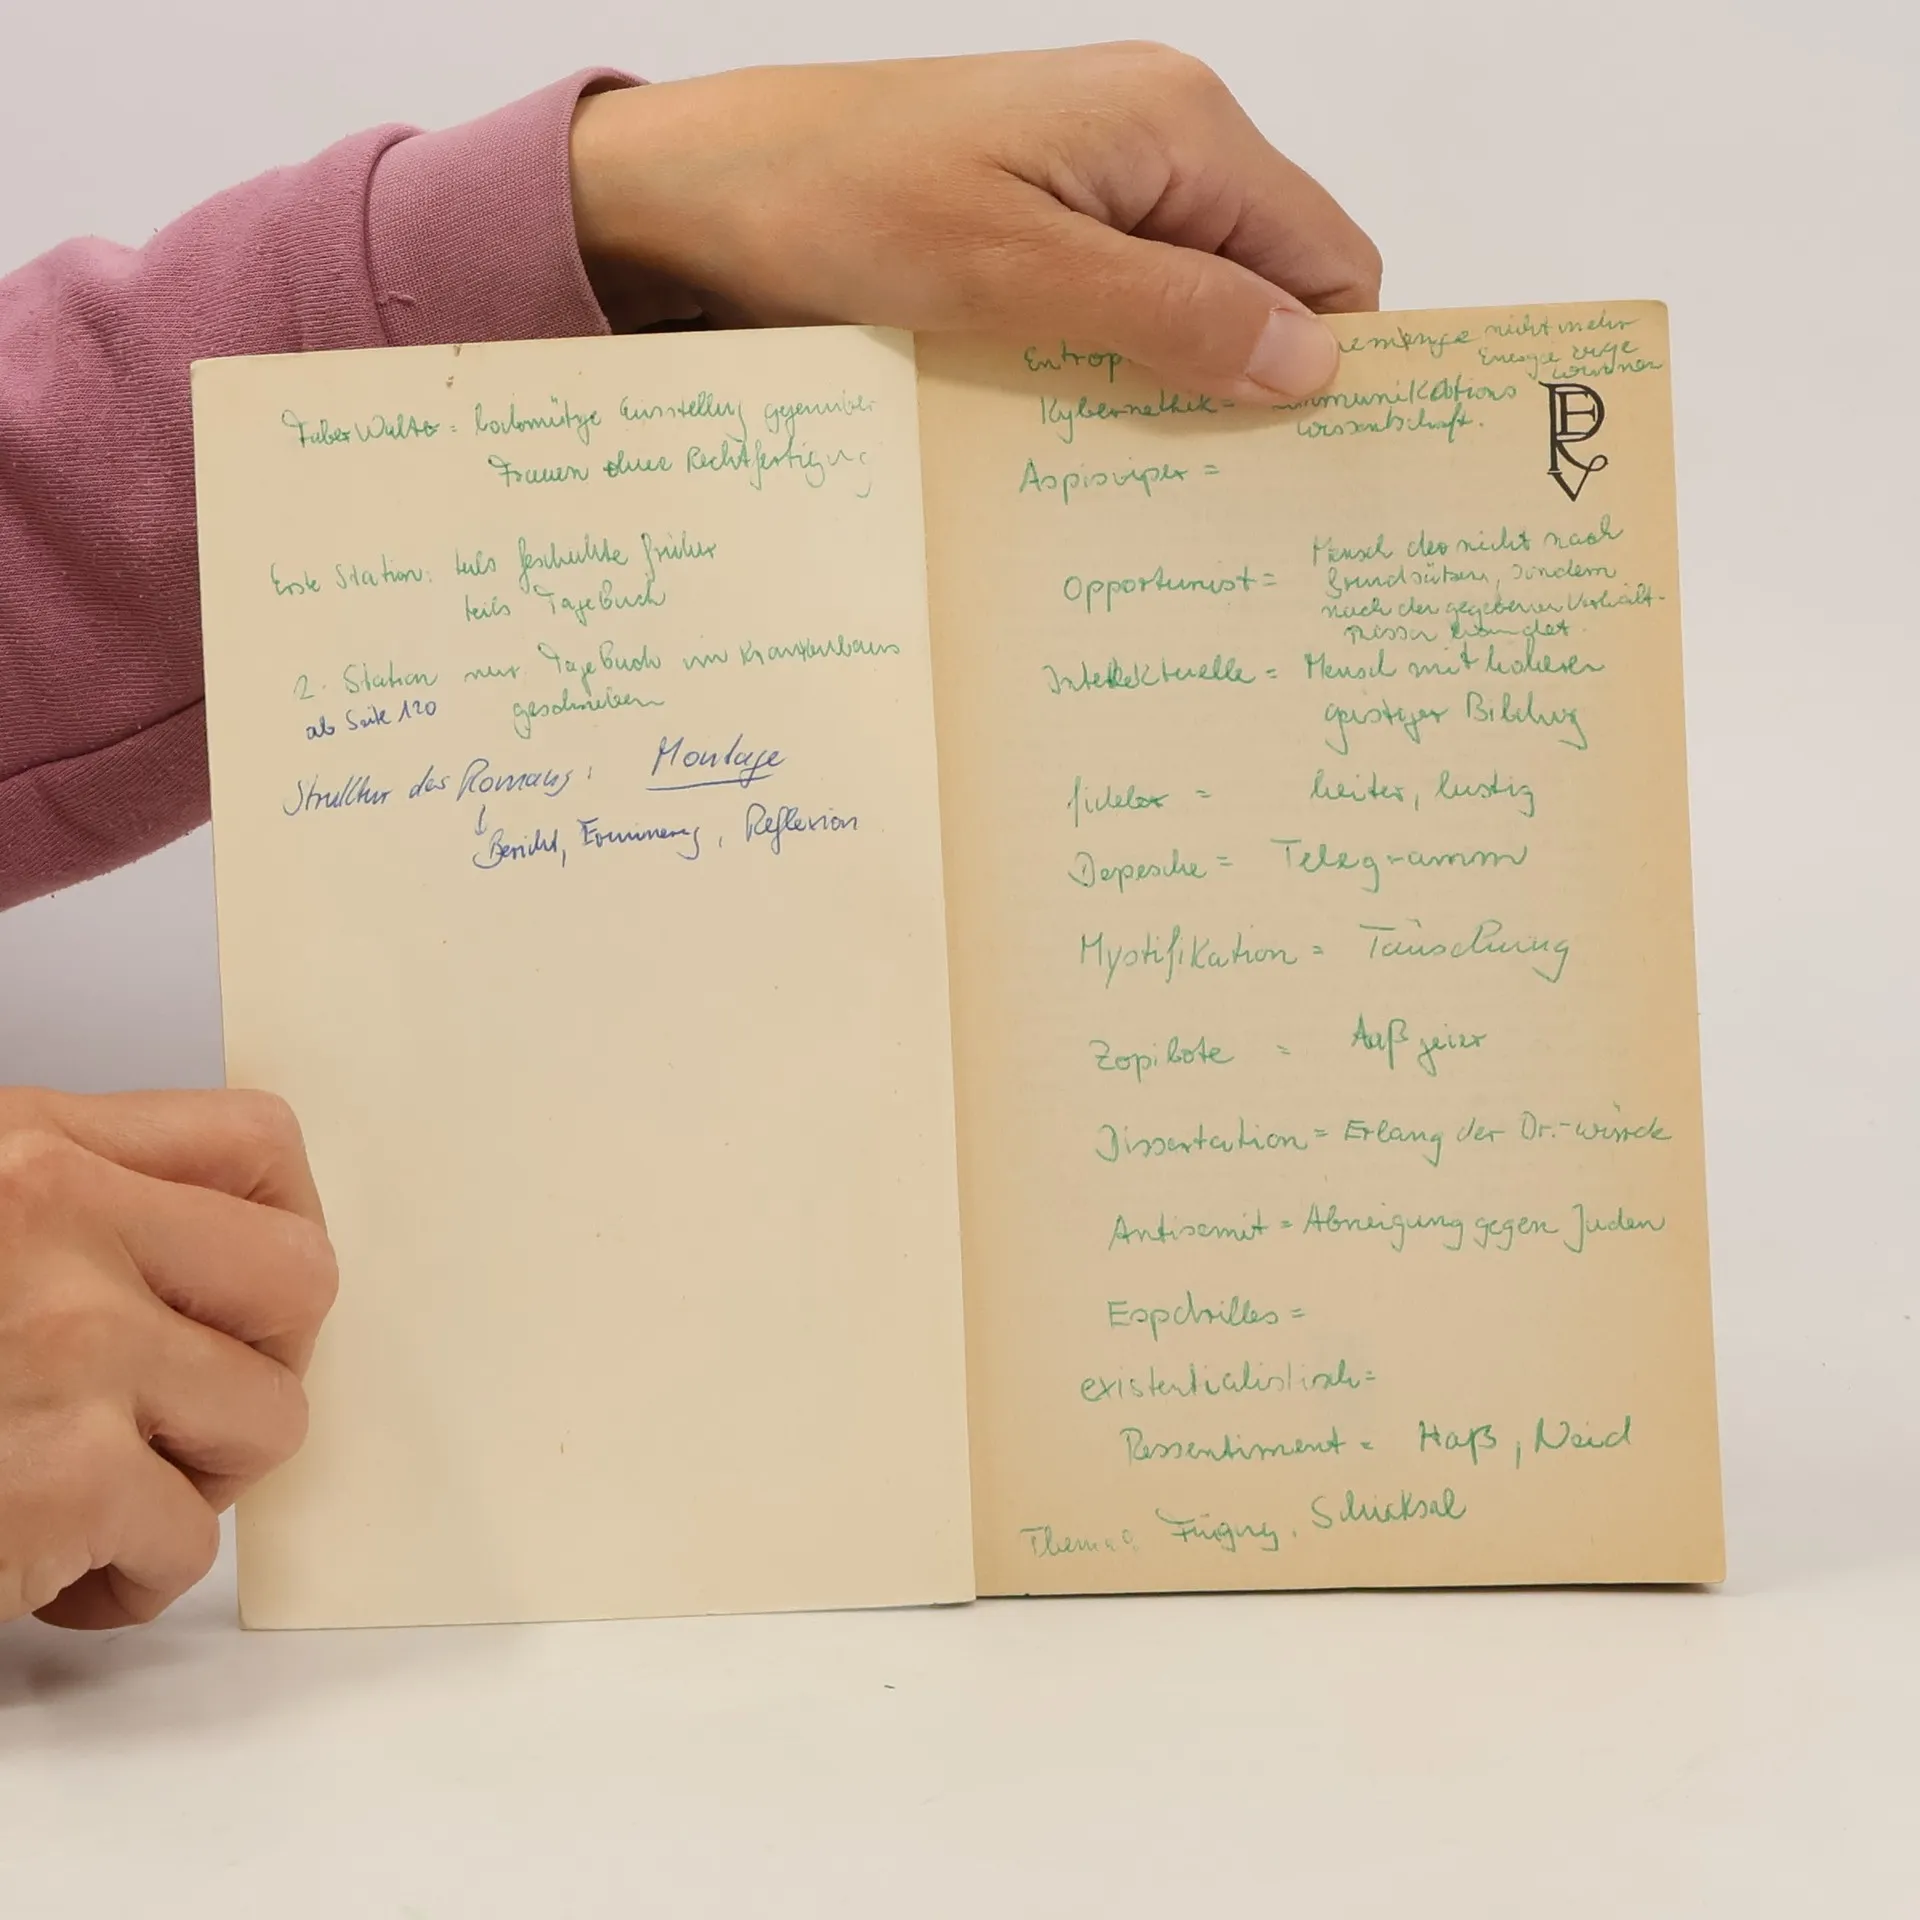 Faber Walter = hochmütige Einstellung gegenüber
Frauen ohne Rechtfertigung
Erste Station: teils Geschichte früher
teils Tagebuch
2. Station nur Tagebuch im Krankenhaus
ab Seite 120 geschrieben
Struktur des Romans: Montage
Bericht, Erinnerung, Reflexion
Entrop nicht mehr
Energie
Kybernethik = mmunikations
wissenschaft.
Aspisviper =
Mensch der nicht nach
Opportunist = Grundsätzen, sondern
nach den gegebenen Verhält-
nissen handelt.
Intellektuelle = Mensch mit hoheren
geistiger Bildung
fideler = heiter, lustig
Depesche = Telegramm
Mystifikation = Täuschung
Zopilote = Aaßgeier
Dissertation = Erlang der Dr.-würde
Antisemit = Abneigung gegen Juden
Espdrilles =
existentialistisch =
Ressentiment = Haß, Neid
Thema: Fügung, Schicksal